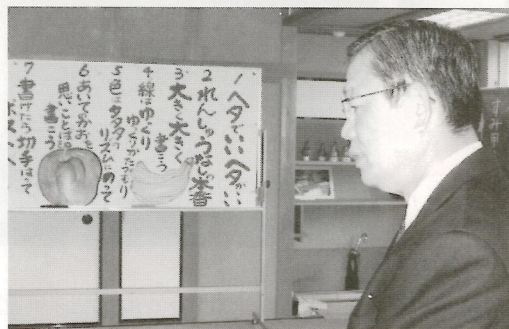 1 ヘタでいいヘタがいい
2 れんしゅうなし本番
3 大きく大きく
書こう
4 線はゆっくり
ゆっくりたっぷり
5 色はタッタッの
リズムにのって
6 あいてのかおを
思いことばを
書こう
7 書けたら切手はって